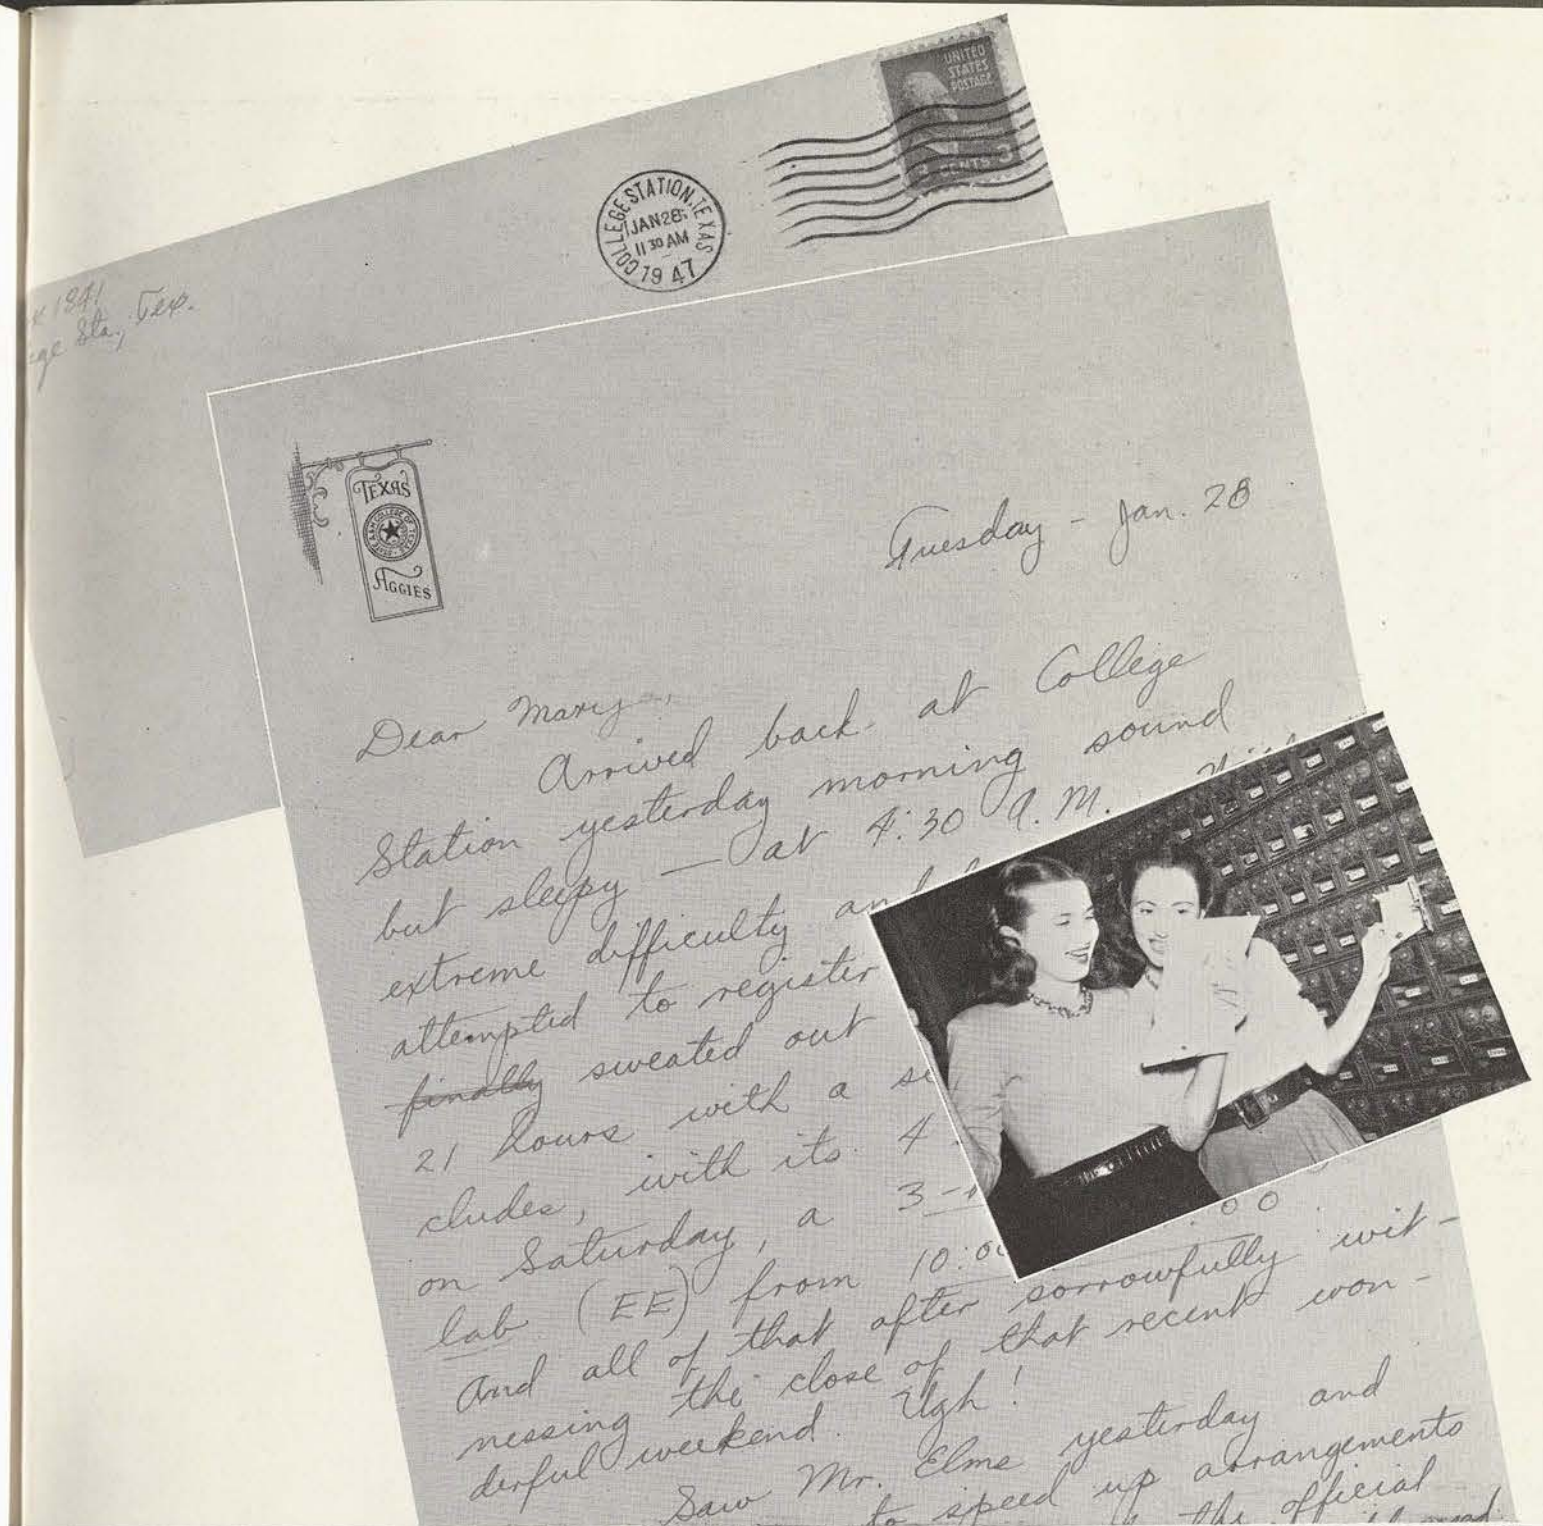 UNITED
STATES
POSTAGE
CENTS 3
COLLEGE STATION, TEXAS
JAN 28
11 30 AM
1947
Sta., Tex.
TEXAS
AGGIES
Tuesday - Jan. 28
Dear Mary,
Arrived back at College
Station yesterday morning sound
but sleepy — at 4:30 A.M.
extreme difficulty and
attempted to register
finally sweated out
21 hours with a
cludes, with its 4
on Saturday, a 3-
lab (EE) from 10:00
And all of that after sorrowfully wit-
nessing the close of that recent won-
derful weekend. Ugh!
Saw Mr. Elms yesterday and
to speed up arrangements
the official